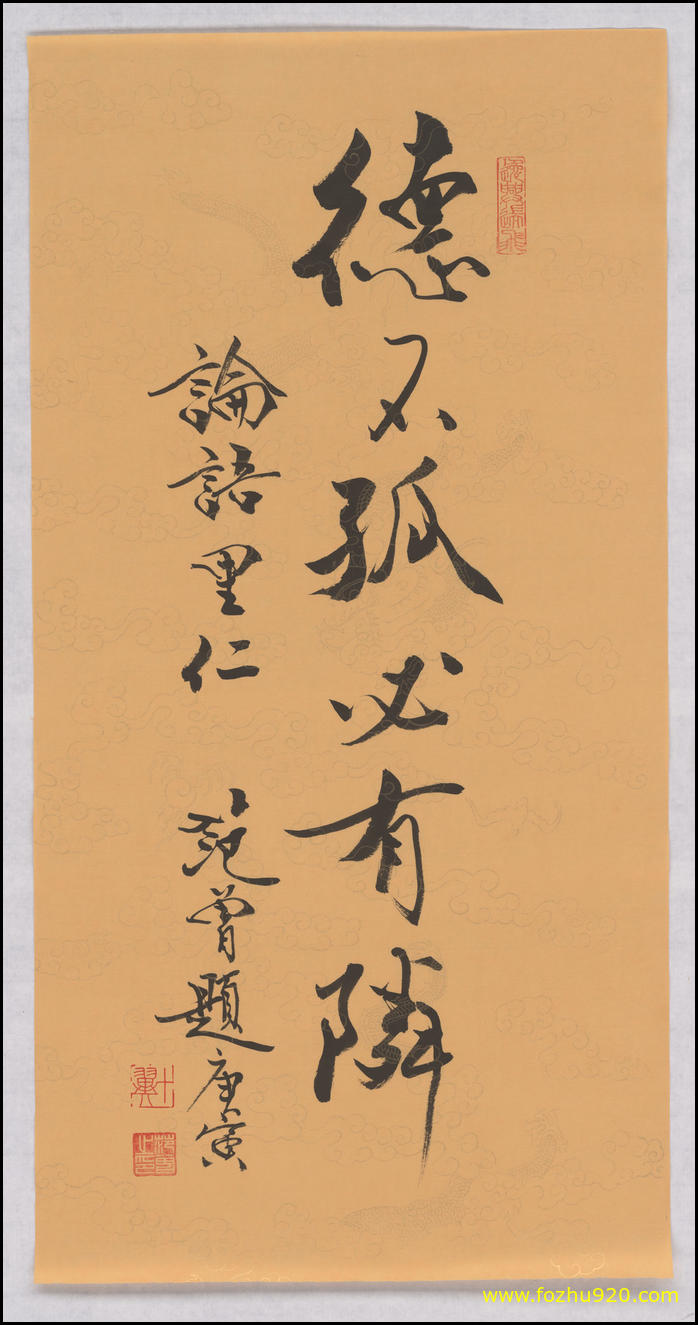 德不孤必有隣
論語里仁 范曾題庚寅
十翼
www.fozhu920.com